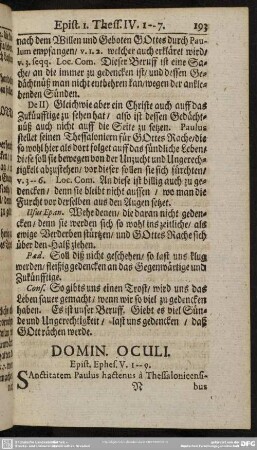 Epist. 1. Thess. IV. 1--7. 193
nach dem Willen und Geboten GOttes durch Pau-
lum empfangen/ v. 1. 2. welcher auch erkläret wird/
v. 3. seqq. Loc. Com. Dieser Beruff ist eine Sa-
che/ an die immer zu gedencken ist/ und dessen Ge-
dächtnüß man nicht entbehren kan/wegen der anklе-
benden Sünden.
De II) Gleichwie aber ein Christe auch auff das
Zukünfftige zu sehen hat/ also ist dessen Gedächt-
nüß auch nicht auff die Seite zu setzen. Paulus
stellet seinen Thessalonicern für GOttes Rache/die
so wohl hier als dort folget auff das sündliche Leben/
diese soll sie bewegen von der Unzucht und Ungerech-
tigkeit abzustehen/ vor dieser sollen sie sich fürchten/
v. 3--6. Loc. Com. An diese ist billig auch zu ge-
dencken/ denn sie bleibt nicht aussen/ wo man die
Furcht vor derselben aus den Augen setzet.
Usus Epan. Wehe denen/ die daran nicht geden-
cken/ denn sie werden sich so wohl ins zeitliche/ als
ewige Verderben stürzen/ und GOttes Rache sich
über den Halß ziehen.
Pæd. Soll diß nicht geschehen/ so last uns klug
werden/ fleißig gedencken an das Gegenwärtige und
Zukünfftige.
Cons. So gibts uns einen Trost/ wird uns das
Leben sauer gemacht/ wenn wir so viel zu gedencken
haben. Es ist unser Beruff. Giebt es viel Sün-
de und Ungerechtigkeit/ last uns gedencken/ daß
GOtt rächen werde.
DOMIN. OCULI.
Epist. Ephes. V. 1--9.
SAnctitatem Paulus hactenus à Thessalonicensi-
N bus